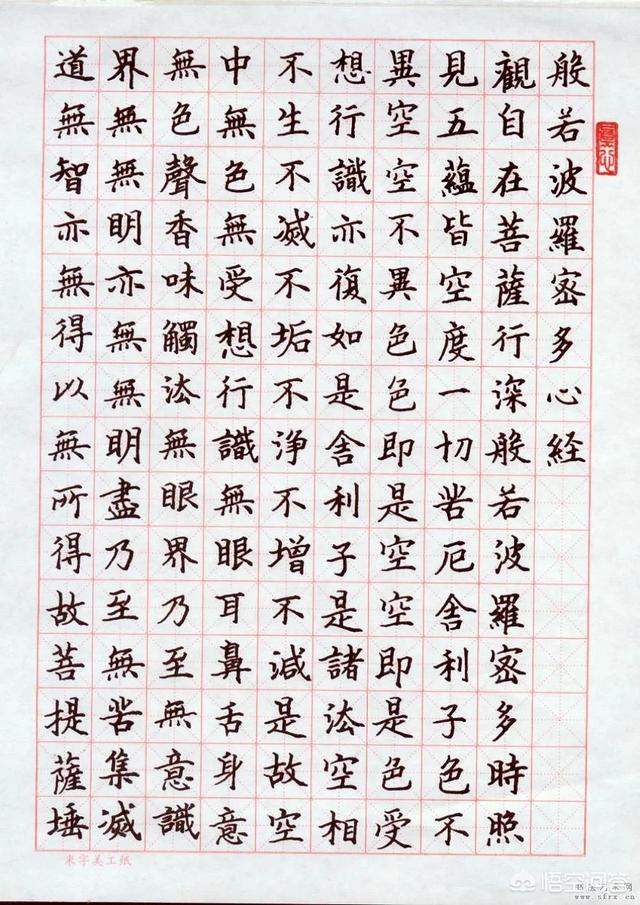 般若波羅密多心経
觀自在菩薩行深般若波羅密多時照
見五蘊皆空度一切苦厄舍利子色不
異空空不異色色即是空空即是色受
想行識亦復如是舍利子是諸法空相
不生不滅不垢不淨不增不減是故空
中無色無受想行識無眼耳鼻舌身意
無色聲香味觸法無眼界乃至無意識
界無無明亦無無明盡乃至無苦集滅
道無智亦無得以無所得故菩提薩埵
米字美工纸
悟空问答